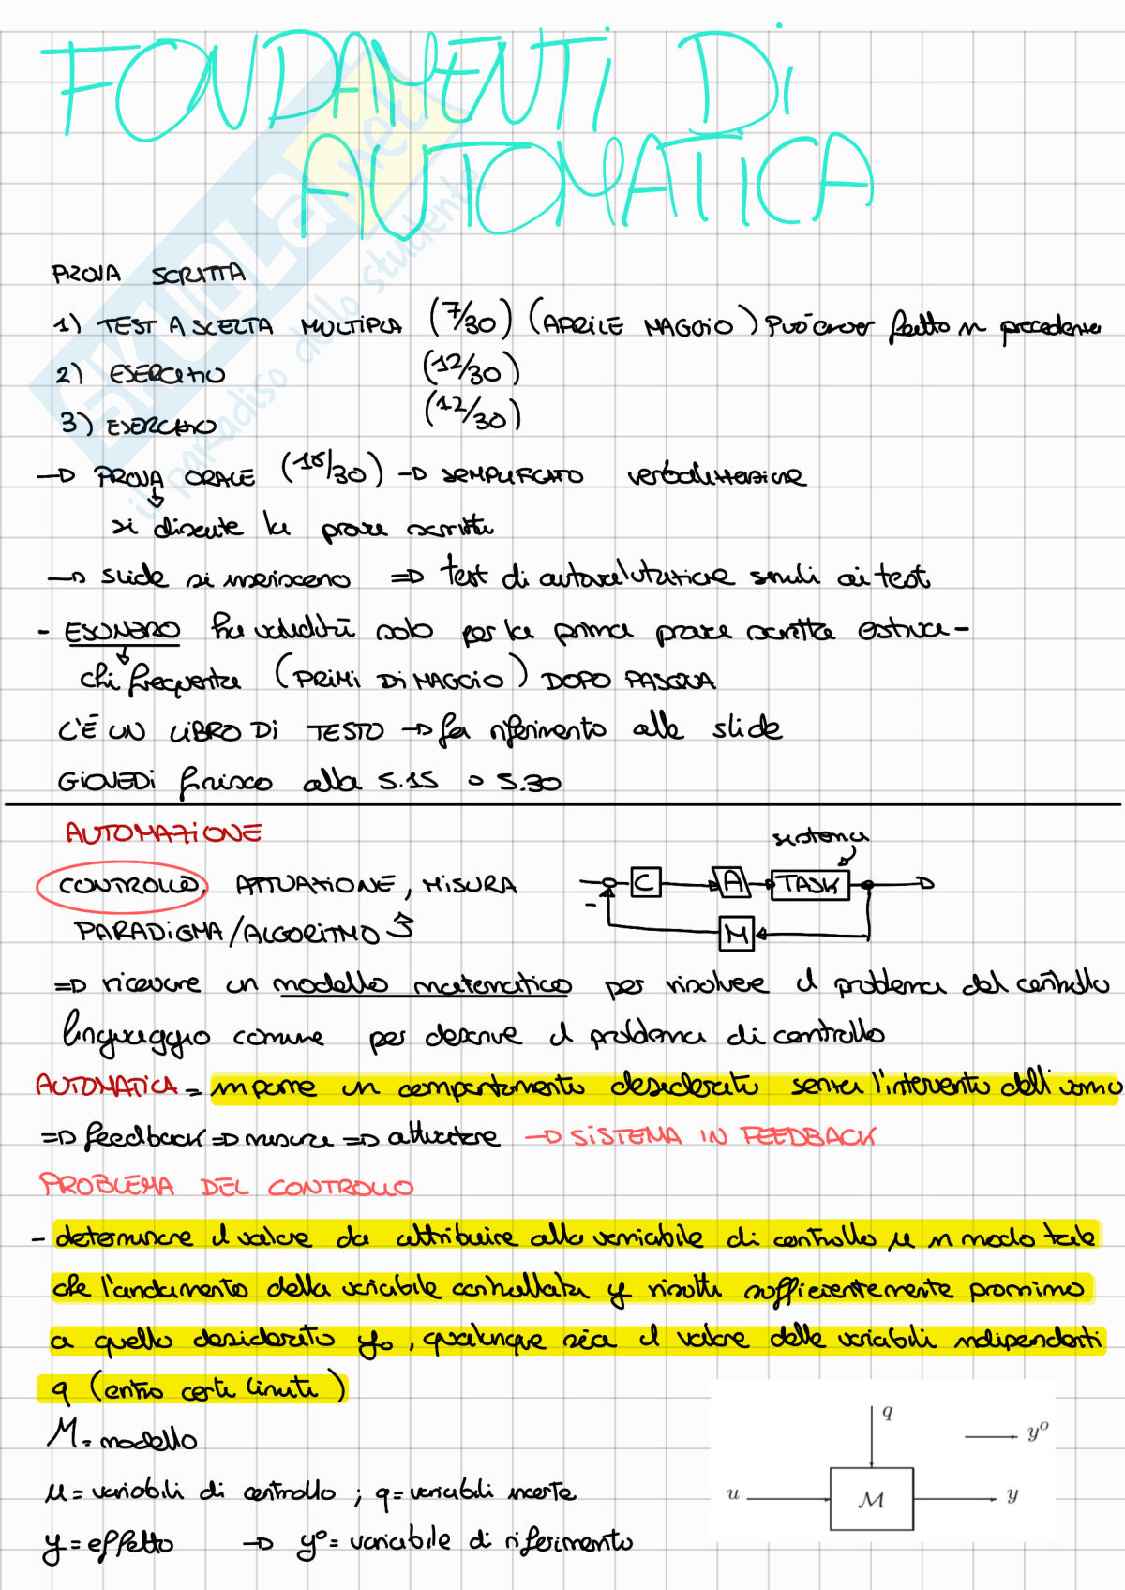 FONDAMENTI DI
AUTOMATICA
PROVA SCRITTA
1) TEST A SCELTA MULTIPLA (7/30) (APRILE MAGGIO) Può essere fatto in precedenza
2) ESERCIZIO (12/30)
3) ESERCIZIO (12/30)
→ PROVA ORALE (16/30) → SEMPLIFICATO verbalizzazione
si discute la prova scritta
→ slide si inseriscono ⇒ test di autovalutazione simili ai test
- ESONERO ha validità solo per la prima prova scritta estiva-
chi frequenta (PRIMI DI MAGGIO) DOPO PASQUA
C'È UN LIBRO DI TESTO → fa riferimento alle slide
GIOVEDì finisco alla 5.15 o 5.30
AUTOMAZIONE
sistema
CONTROLLO, ATTUAZIONE, MISURA
C A TASK
-
PARADIGMA/ALGORITMO
M
⇒ ricavare un modello matematico per risolvere il problema del controllo
linguaggio comune per descrive il problema di controllo
AUTOMATICA = imporre un comportamento desiderato senza l'intervento dell'uomo
⇒ feedback ⇒ misura ⇒ attuatore → SISTEMA IN FEEDBACK
PROBLEMA DEL CONTROLLO
- determinare il valore da attribuire alla variabile di controllo μ in modo tale
che l'andamento della variabile controllata y risulti sufficientemente prossimo
a quello desiderato y₀, qualunque sia il valore delle variabili indipendenti
q (entro certi limiti)
M = modello
q
yº
μ = variabili di controllo ; q = variabili incerte
u M y
y = effetto → yº = variabile di riferimento
SKUOLA.net
il paradiso dello studente